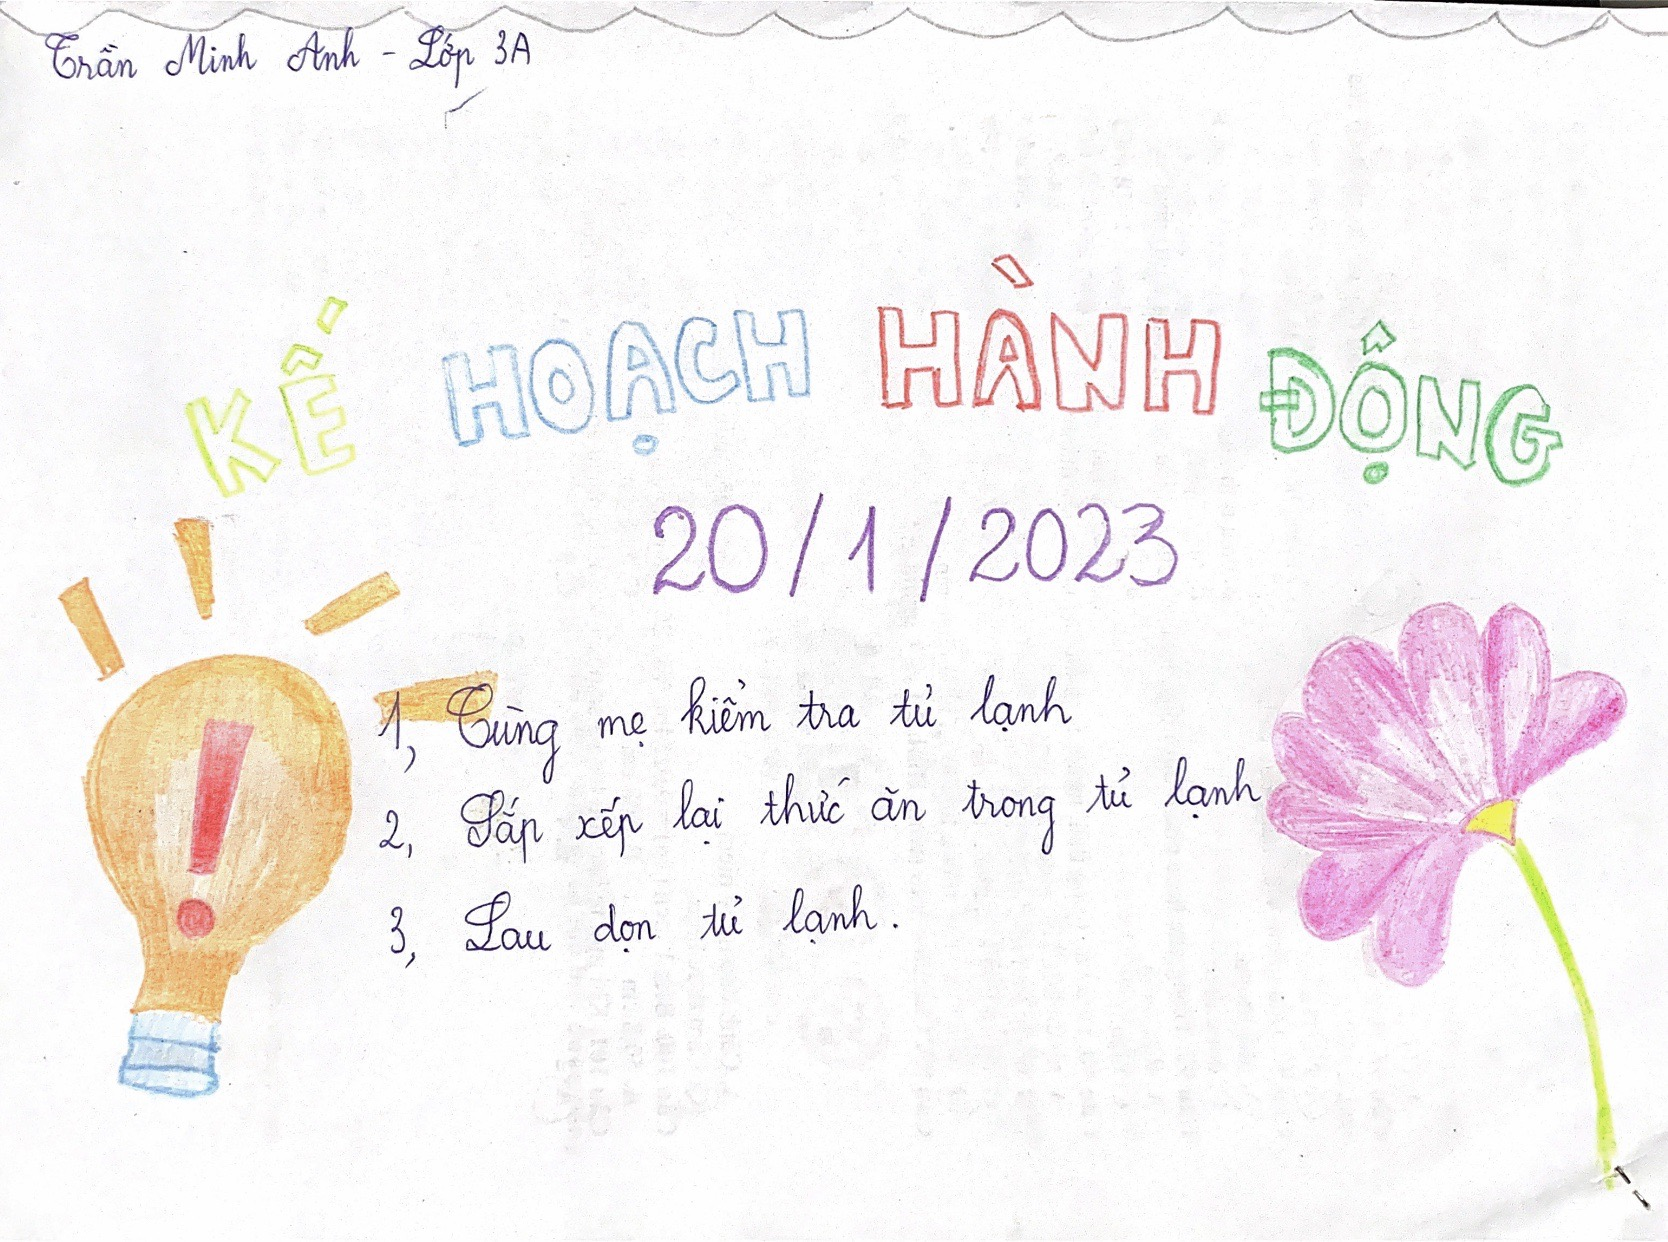 Trần Minh Anh - Lớp 3A
KẾ HOẠCH HÀNH ĐỘNG
20/1/2023
1, Cùng mẹ kiểm tra tủ lạnh
2, Sắp xếp lại thức ăn trong tủ lạnh
3, Lau dọn tủ lạnh.